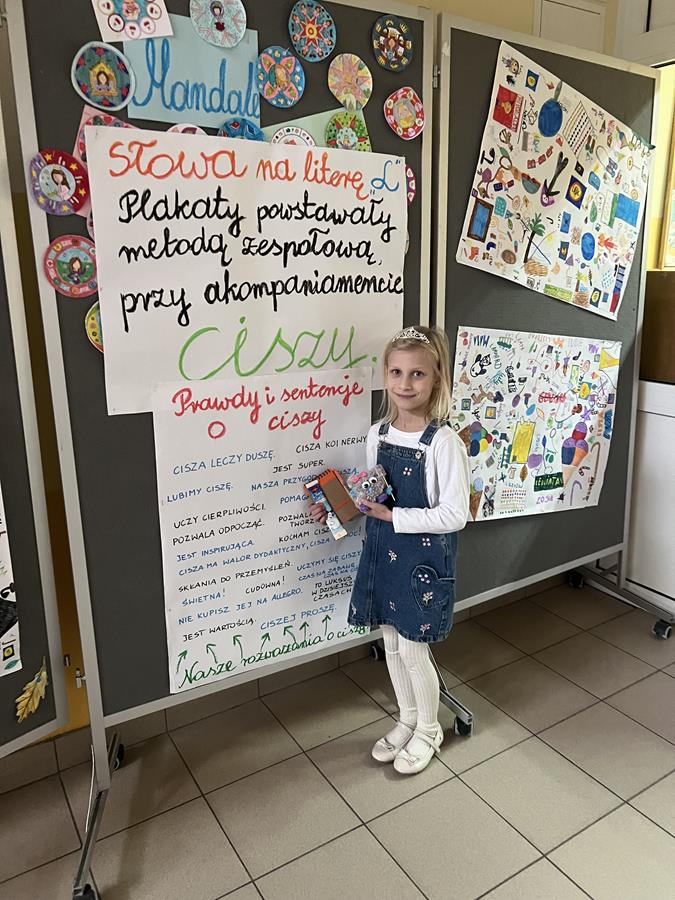 Mandale
Słowa na literę „C"
Plakaty powstawały
metodą zespołową,
przy akompaniamencie
ciszy.
Prawdy i sentencje
o ciszy
CISZA LECZY DUSZĘ. CISZA KOI NERWY
JEST SUPER.
LUBIMY CISZĘ. NASZA PRZYGODA
UCZY CIERPLIWOŚCI. POMAGA
POZWALA ODPOCZĄĆ. POZWALA
TWORZ
JEST INSPIRUJĄCA. KOCHAM CISZĘ
CISZA MA WALOR DYDAKTYCZNY, CISZA
SKŁANIA DO PRZEMYŚLEŃ. UCZYMY SIĘ CISZY
CZAS NA ZABAWĘ,
CZAS NA CISZĘ
ŚWIETNA! CUDOWNA! TO LUKSUS
W DZISIEJSZYCH
CZASACH
NIE KUPISZ JEJ NA ALLEGRO.
JEST WARTOŚCIĄ CISZEJ PROSZĘ.
Nasze rozważania o ciszy